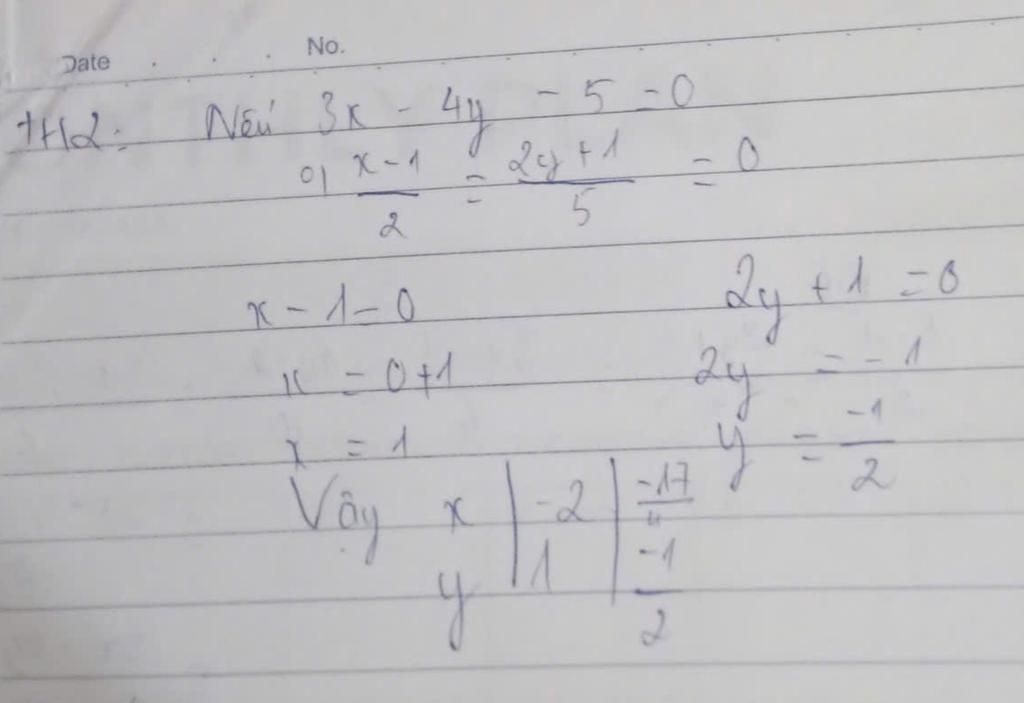 Date No.
TH2: Nếu 3x - 4y - 5 = 0
x - 1 / 2 = 2y + 1 / 5 = 0
x - 1 = 0 2y + 1 = 0
x = 0 + 1 2y = - 1
x = 1 y = -1 / 2
Vậy x | -2 | -17 / 4
y | 1 | -1 / 2